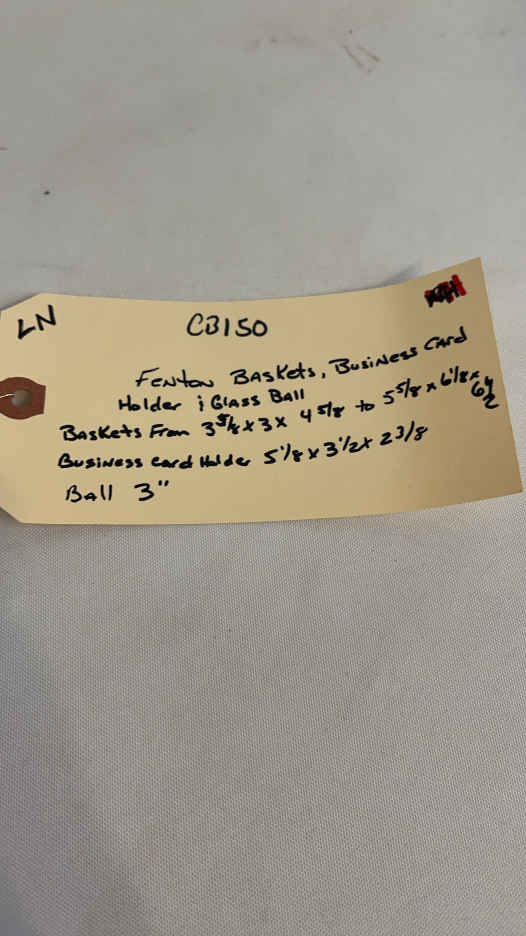 LN
CB150
Fenton Baskets, Business Card
Holder & Glass Ball
Baskets From 3 5/8 x 3 x 4 5/8 to 5 5/8 x 6 1/8 x
Business Card Holder 5 1/8 x 3 1/2 x 2 3/8
Ball 3"